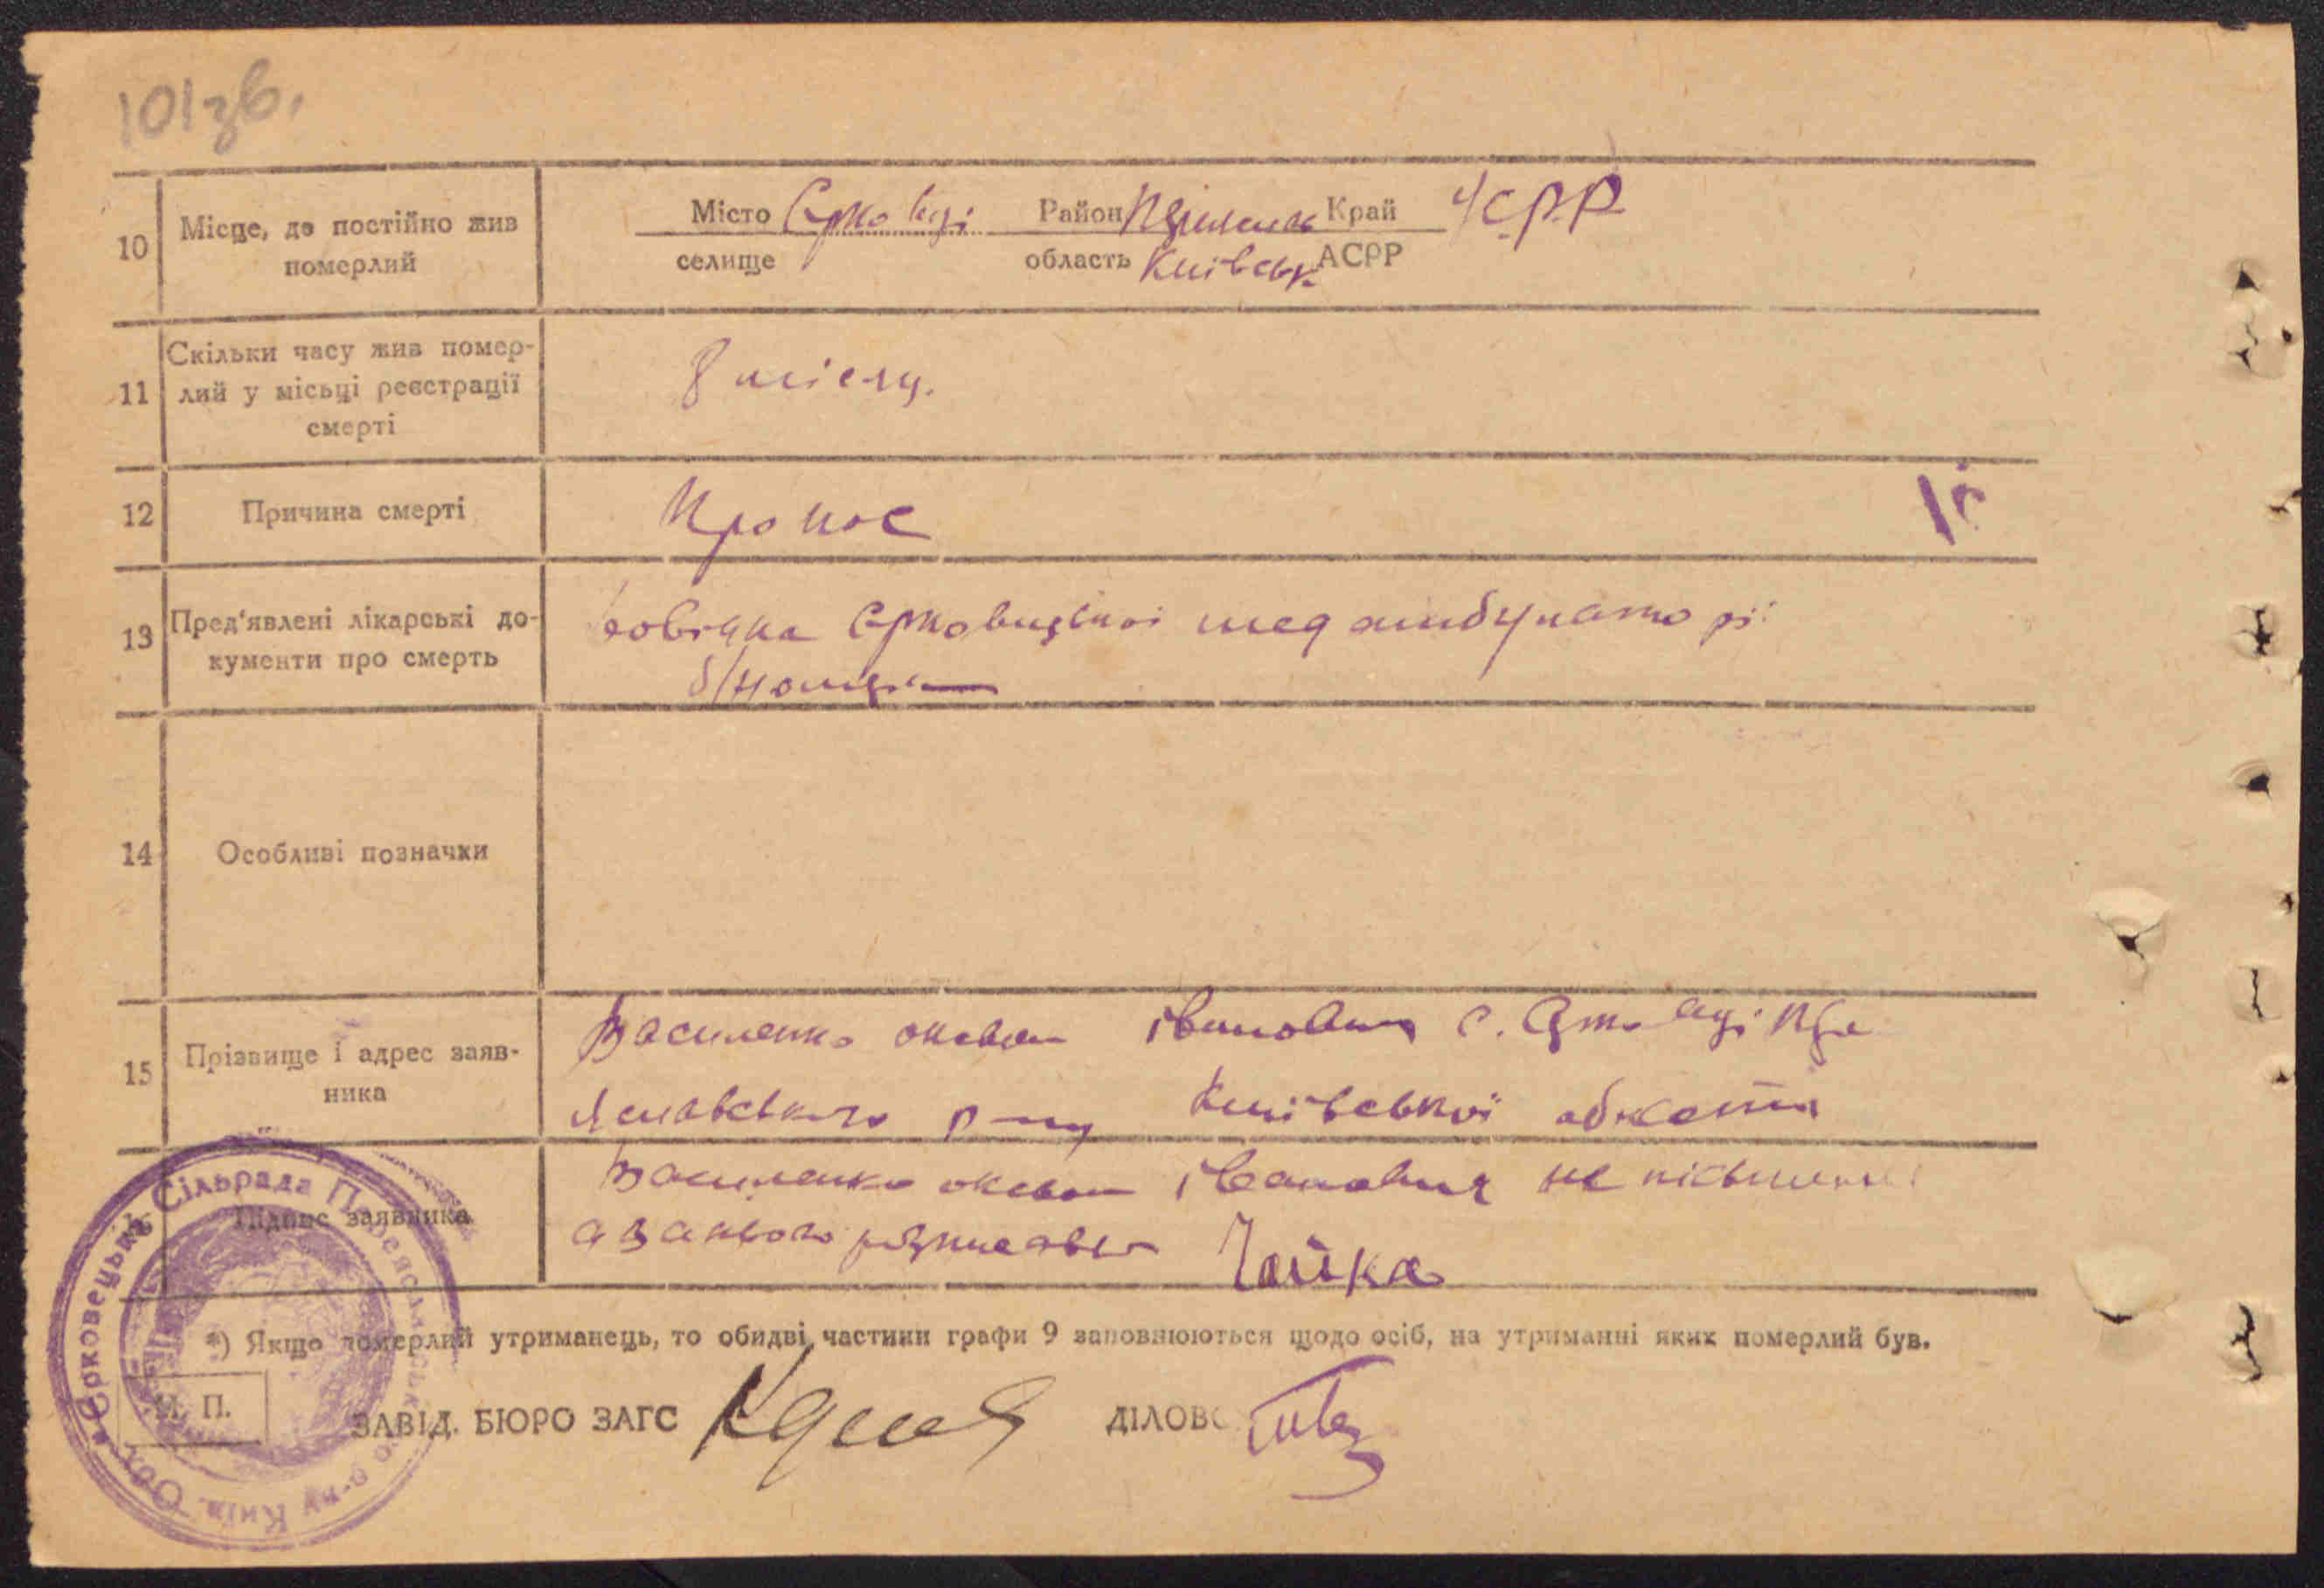 101зв.
10 Місце, де постійно жив померлий
Місто Єрковці Район Край УСРР
селище область Київськ АСРР
11 Скільки часу жив помер-
лий у місьці реєстрації
смерті
8 місяц.
12 Причина смерті
Пронос
13 Пред'явлені лікарські до-
кументи про смерть
довідка Єрковицької мед амбулаторії
б/номера
14 Особливі позначки
15 Прізвище і адрес заяв-
ника
Василенко Іванович с. Єрковці Пере
яславського р-ну Київської області
16 Підпис заявника
Василенко Іванович не письменн
а за нього розписався Чайка
*) Якщо померлий утриманець, то обидві частини графи 9 заповнюються щодо осіб, на утриманні яких померлий був.
М. П.
ЗАВІД. БЮРО ЗАГС ДІЛОВО
Єрковецька Сільрада Переяславського р-ну Київ. Обл.